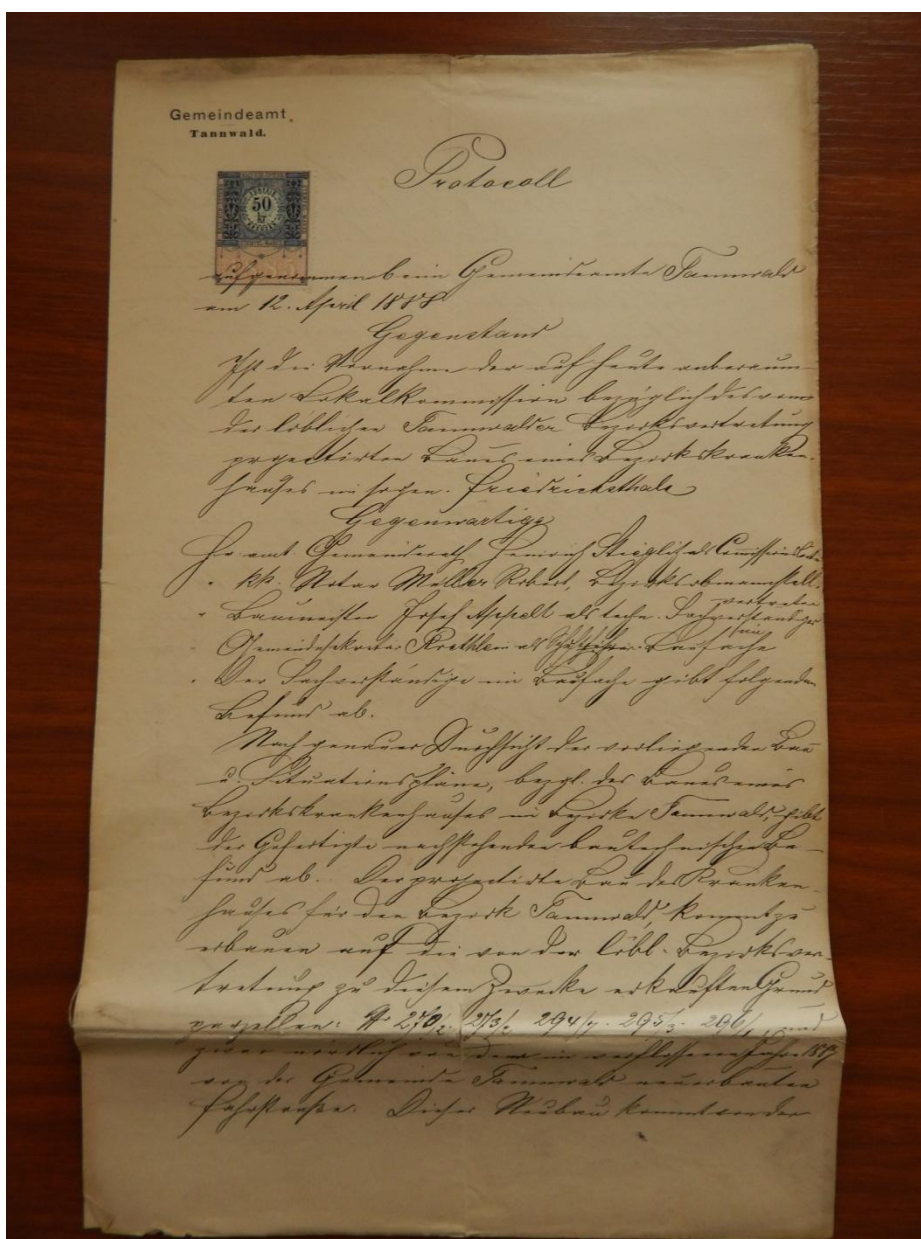 Gemeindeamt
Tannwald.
50
kr
Protocoll
aufgenommen beim Gemeindeamte Tannwald
am 12. April 1888
Gegenstand
Ist die Vornahme der auf heute anberaum-
ten Lokalkommission bezüglich des von
der löblichen Tannwalder Bezirksvertretung
projectirten Baues eines Bezirkskranken-
hauses im sogen. Friedrichsthale
Gegenwärtige
Hr. amt. Gemeinderath Heinrich Stieglitz als Commissions
" kk. Notar Müller Robert, Bezirksobmannstell-
vertreter
" Baumeister Josef als tech. Sachverständiger
im
Gemeindesekretär als Schriftführer Baufache
" Der Sachverständige im Baufache gibt folgenden
Befund ab.
Nach genauer Durchsicht der vorliegenden Bau
u. Situationspläne, bezgl. des Baues eines
Bezirkskrankenhauses im Bezirke Tannwald, gibt
der Gefertigte nachstehenden bautechnischen Be-
fund ab. Der projectirte Bau des Kranken-
hauses für den Bezirk Tannwald, kommt zu
erbauen auf die von der löbl. Bezirksver-
tretung zu diesem Zwecke erkauften Grund
parzellen: Nr 270/2. 273/2 294/7. 295/3. 296/1 und
zwar nördlich von dem im verflossenen Jahre 1887
von der Gemeinde Tannwald neuerbauten
Fahrstraße. Dieser Neubau kommt von der